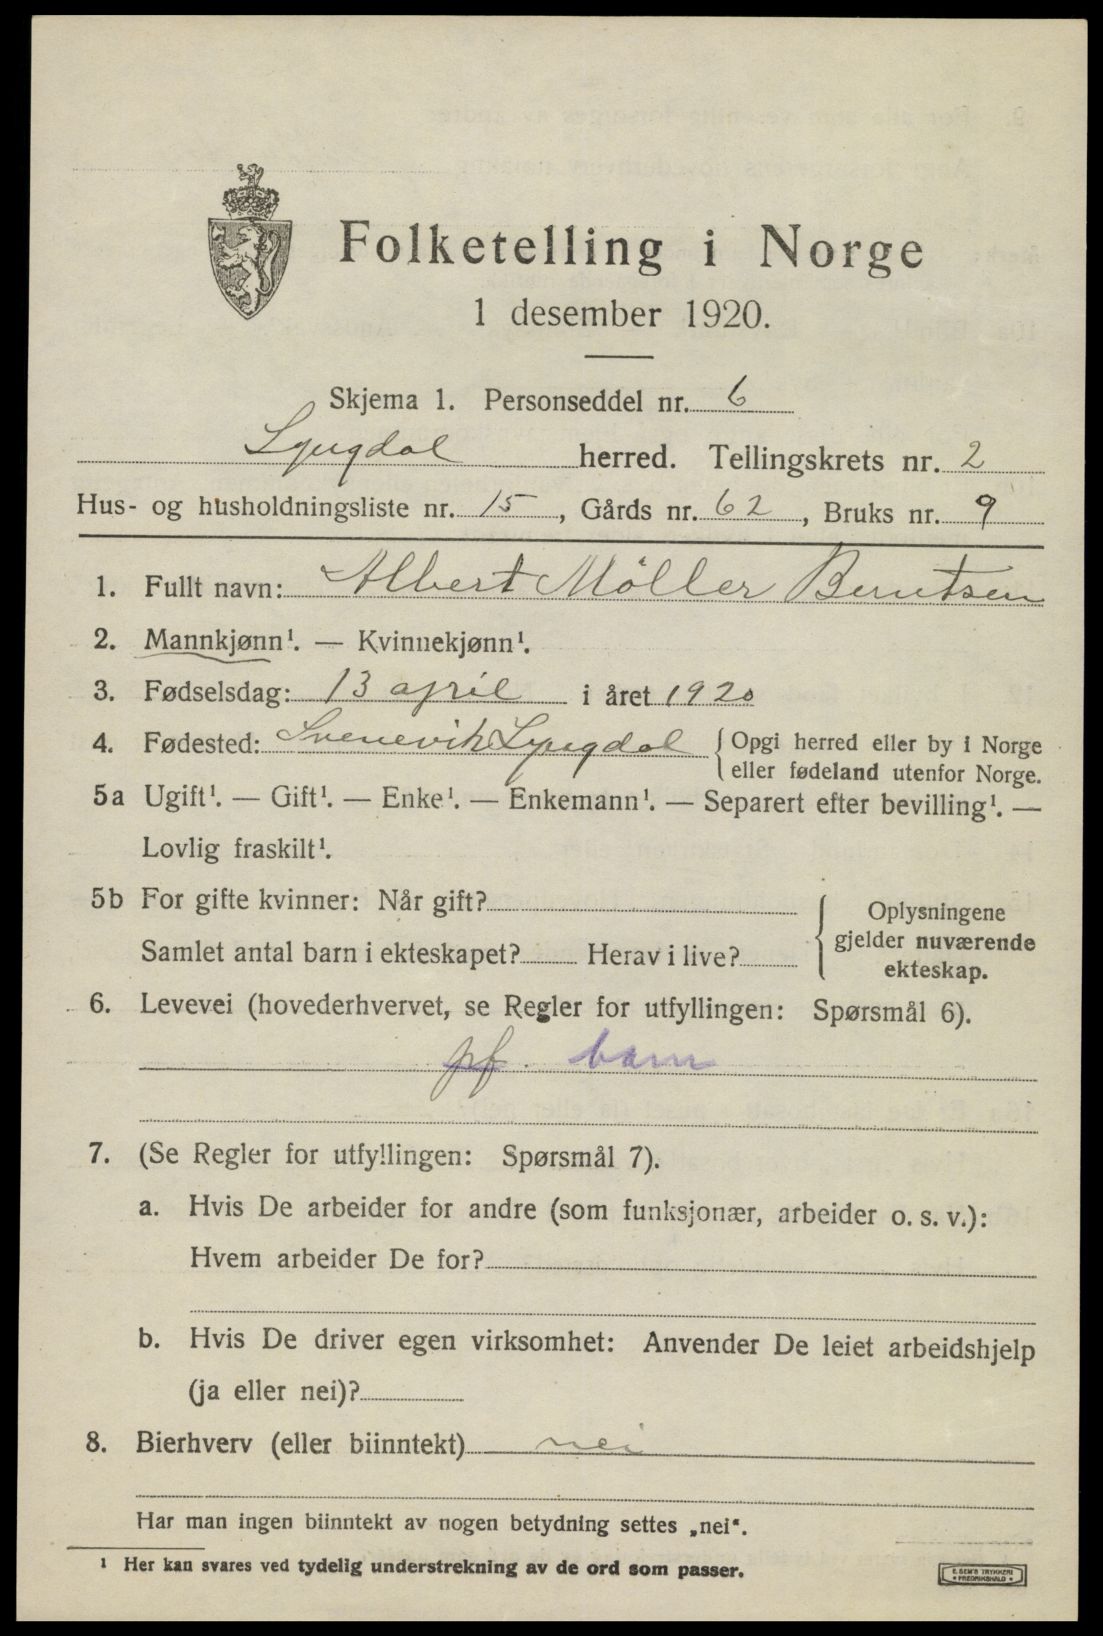 Folketelling i Norge
1 desember 1920.
Skjema 1. Personseddel nr. 6
Lyngdal herred. Tellingskrets nr. 2
Hus- og husholdningsliste nr. 15, Gårds nr. 62, Bruks nr. 9
1. Fullt navn: Albert Möller Berntsen
2. Mannkjønn¹. — Kvinnekjønn¹.
3. Fødselsdag: 13 april i året 1920
4. Fødested: Svenevik Lyngdal { Opgi herred eller by i Norge
eller fødeland utenfor Norge.
5a Ugift¹. — Gift¹. — Enke¹. — Enkemann¹. — Separert efter bevilling¹. —
Lovlig fraskilt¹.
5b For gifte kvinner: Når gift?
Samlet antal barn i ekteskapet? Herav i live?
Oplysningene
gjelder nuværende
ekteskap.
6. Levevei (hovederhvervet, se Regler for utfyllingen: Spørsmål 6).
pf. barn
7. (Se Regler for utfyllingen: Spørsmål 7).
a. Hvis De arbeider for andre (som funksjonær, arbeider o. s. v.):
Hvem arbeider De for?
b. Hvis De driver egen virksomhet: Anvender De leiet arbeidshjelp
(ja eller nei)?
8. Bierhverv (eller biinntekt) nei
Har man ingen biinntekt av nogen betydning settes „nei“.
¹ Her kan svares ved tydelig understrekning av de ord som passer.
E. SEM'S TRYKKERI
* FREDRIKSHALD *